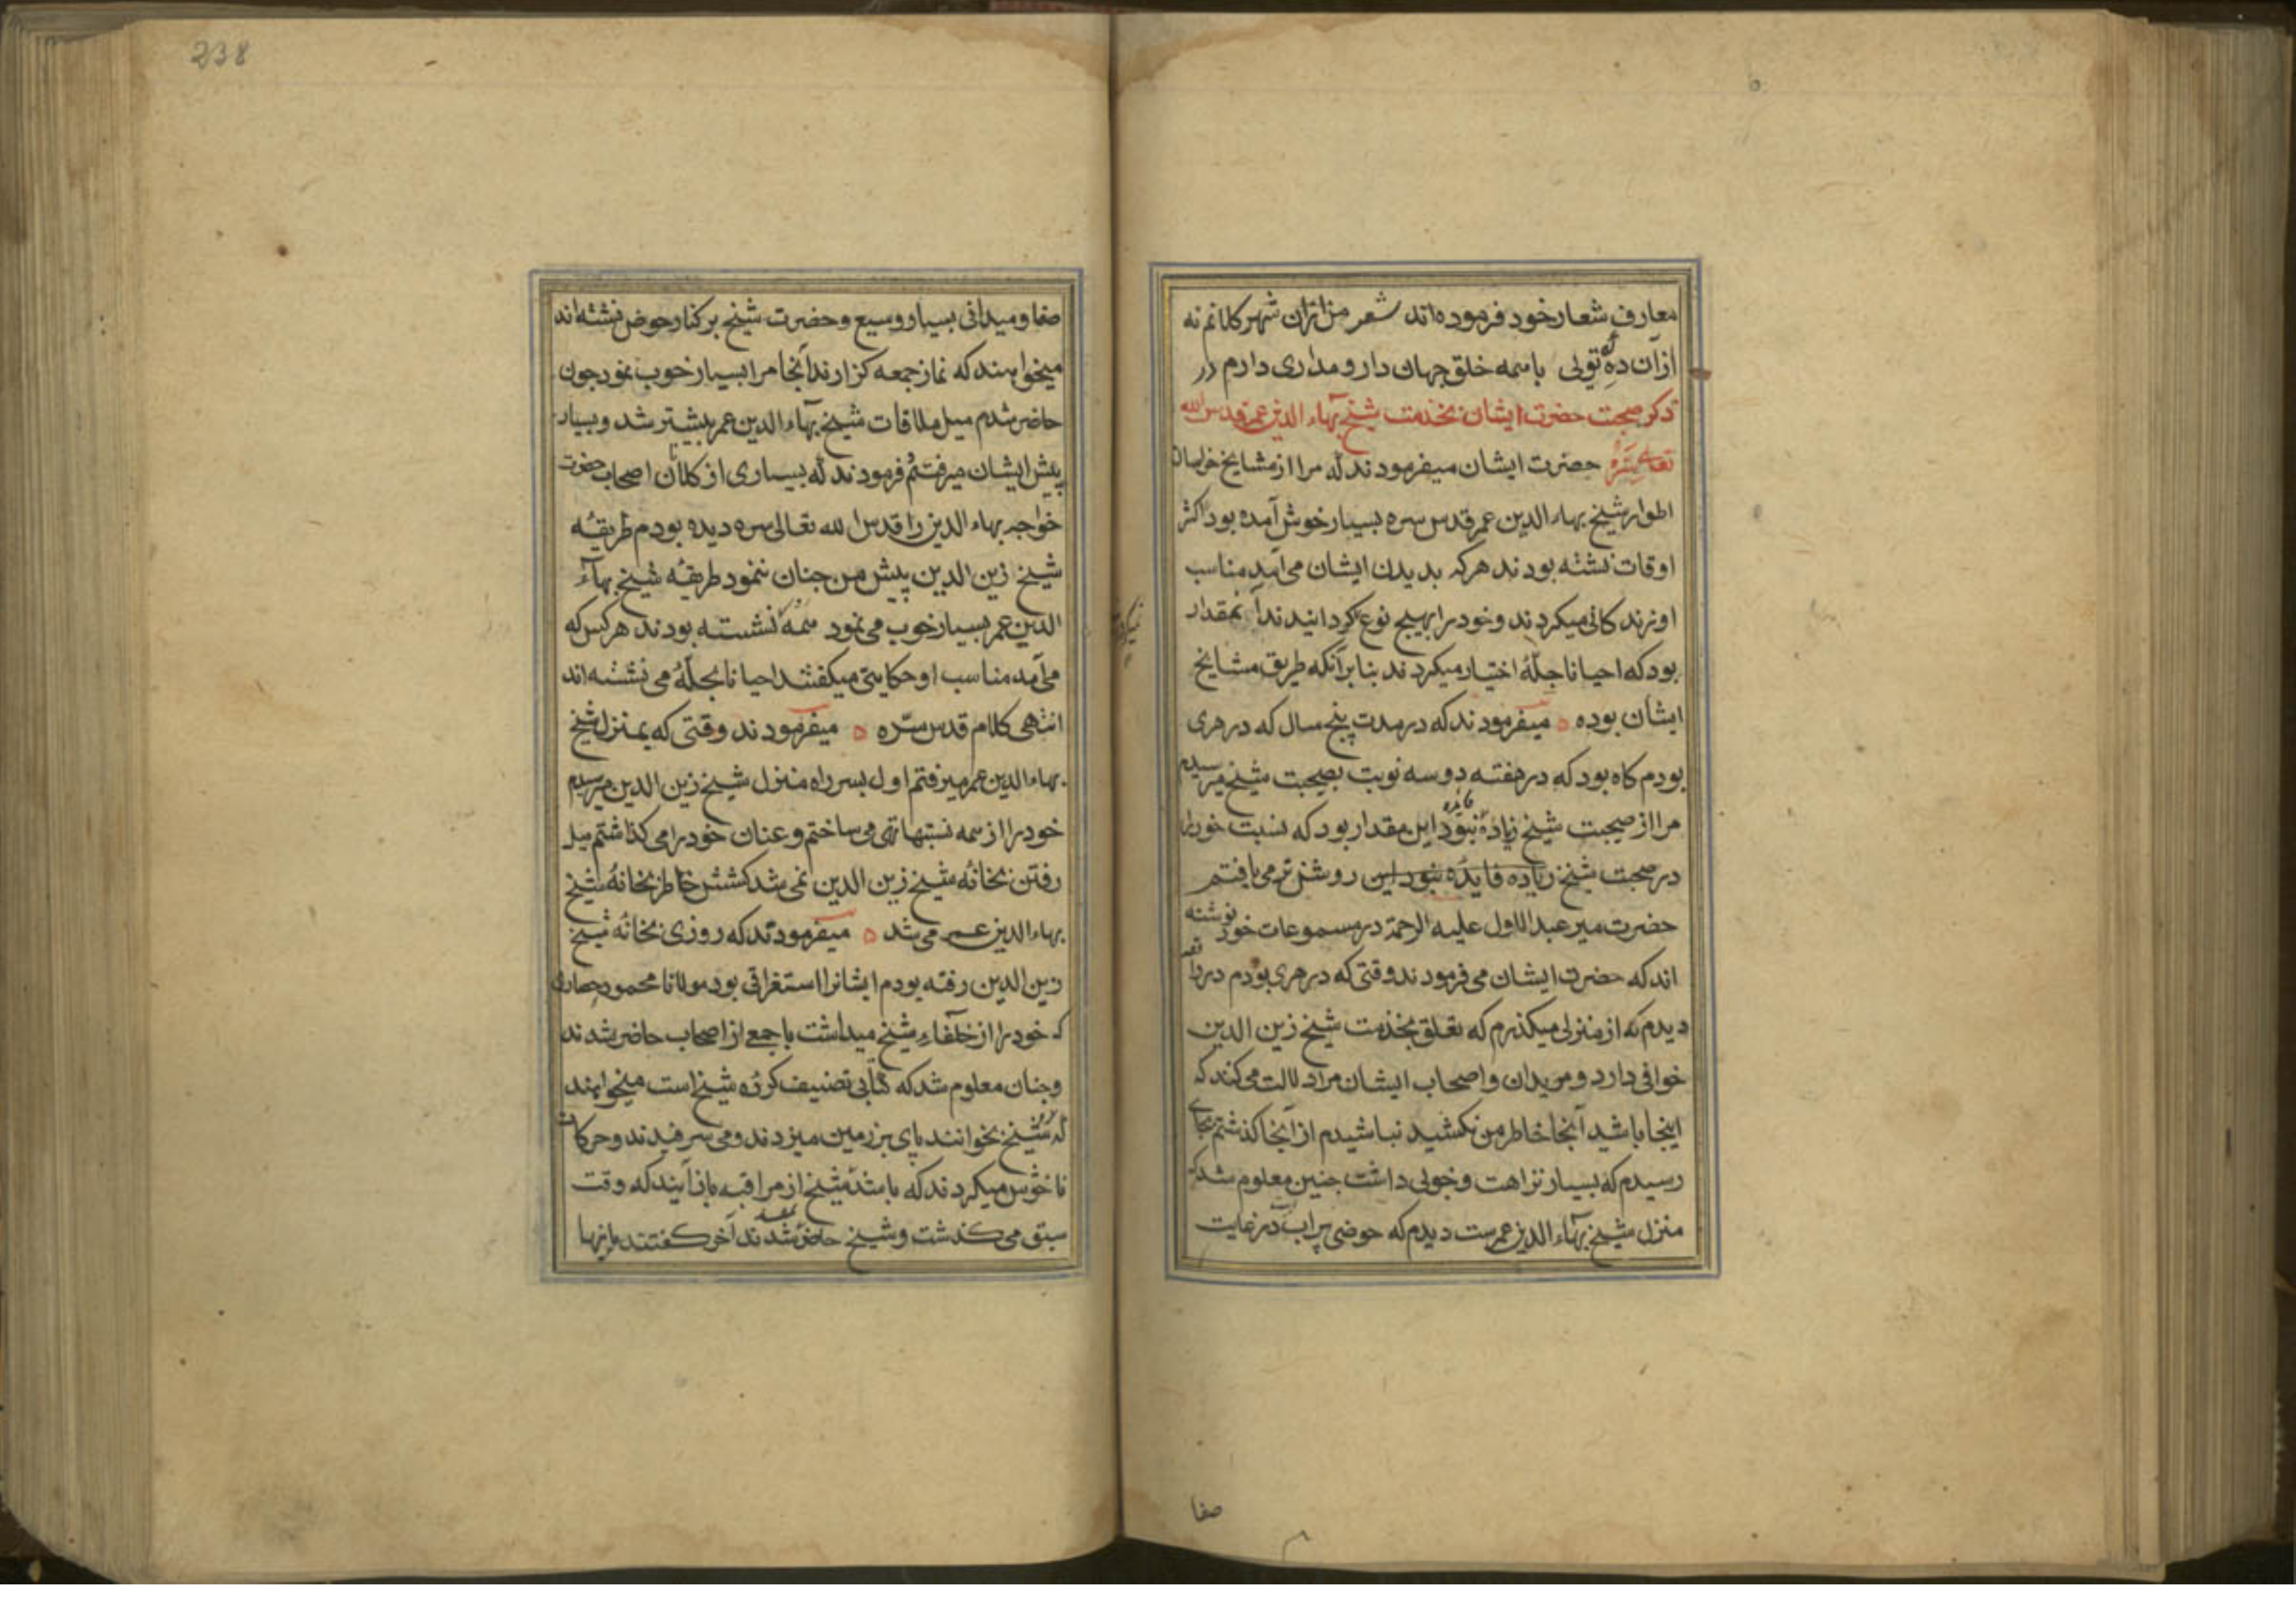 معارف شعار خود فرموده اند شعر من ازان شهر کلانم نه
ازان ده که تو لی باهمه خلق جهان دار و مداری دارم در
ذکر صحبت حضرت ایشان بخدمت شیخ بهاء الدین عمر قدس الله
تعالی سره حضرت ایشان میفرمودند که مرا از مشایخ خراسان
اطوار شیخ بهاء الدین عمر قدس سره بسیار خوش آمده بود اکثر
اوقات نشسته بودند هرکه بدیدن ایشان می آمد مناسب
او زندکانی میکردند و خود را بهیچ نوع نکردانیدند آنمقدار
بود که احیانا جلّهٔ اختیار میکردند بنابر آنکه طریق مشایخ
ایشان بوده میفرمودند که در مدت پنج سال که در هری
بودم کاه بود که در هفته دو سه نوبت بصحبت شیخ میرسیدم
مرا از صحبت شیخ زیاده فایده نبود این مقدار بود که نسبت خود را
در صحبت شیخ زیاده فایده نبود این روشن تر می یافتم
حضرت میر عبد الاول علیه الرحمة در مسموعات خود نوشته
اند که حضرت ایشان می فرمودند وقتی که در هری بودم در واقعه
دیدم که از منزلی میکذرم که تعلق بخدمت شیخ زین الدین
خوافی دارد و مریدان و اصحاب ایشان مرا دلالت می کنند که
اینجا باشید آنجا خاطر من نکشید نباشیدم از آنجا کذشتم بجای
رسیدم که بسیار نزاهت و خوبی داشت جنین معلوم شد که
منزل شیخ بهاء الدین عمرست دیدم که حوضی پر آب در غایت
صفا
صفا و میدانی بسیار وسیع و حضرت شیخ بر کنار حوض نشسته اند
میخواهند که نماز جمعه کزارند آنجا مرا بسیار خوب نمود جون
حاضر شدم میل ملاقات شیخ بهاء الدین عمر بیشتر شد و بسیار
پیش ایشان میرفتم فرمودند که بسیاری از کلانان اصحاب حضرت
خواجه بهاء الدین را قدس الله تعالی سره دیده بودم طریقهٔ
شیخ زین الدین پیش من جنان ننمود طریقهٔ شیخ بهاء
الدین عمر بسیار خوب می نمود همه نشسته بودند هرکس که
می آمد مناسب او حکایتی میکفتند احیانا بجلّهٔ می نشسته اند
انتهی کلام قدس سره میفرمودند وقتی که بمنزل شیخ
بهاء الدین عمر میرفتم اول بسر راه منزل شیخ زین الدین میرسیدم
خود را از همه نسبتها تهی می ساختم و عنان خود را می کذاشتم میل
رفتن بخانهٔ شیخ زین الدین نمی شد کشش خاطر بخانهٔ شیخ
بهاء الدین عمر می شد میفرمودند که روزی بخانهٔ شیخ
زین الدین رفته بودم ایشانرا استغراقی بود مولانا محمود حصاری
که خود را از خلفاء شیخ میداشت با جمعی از اصحاب حاضر شدند
و جنان معلوم شد که کتابی تصنیف کردهٔ شیخ است میخواهند
که شیخ بخوانند پای بر زمین میزدند و می سرفیدند و حرکات
ناخوش میکردند که باشد شیخ از مراقبه باز آیند که وقت
سبق می کذشت و شیخ حاضر نمی شدند آخر کفتند باینها